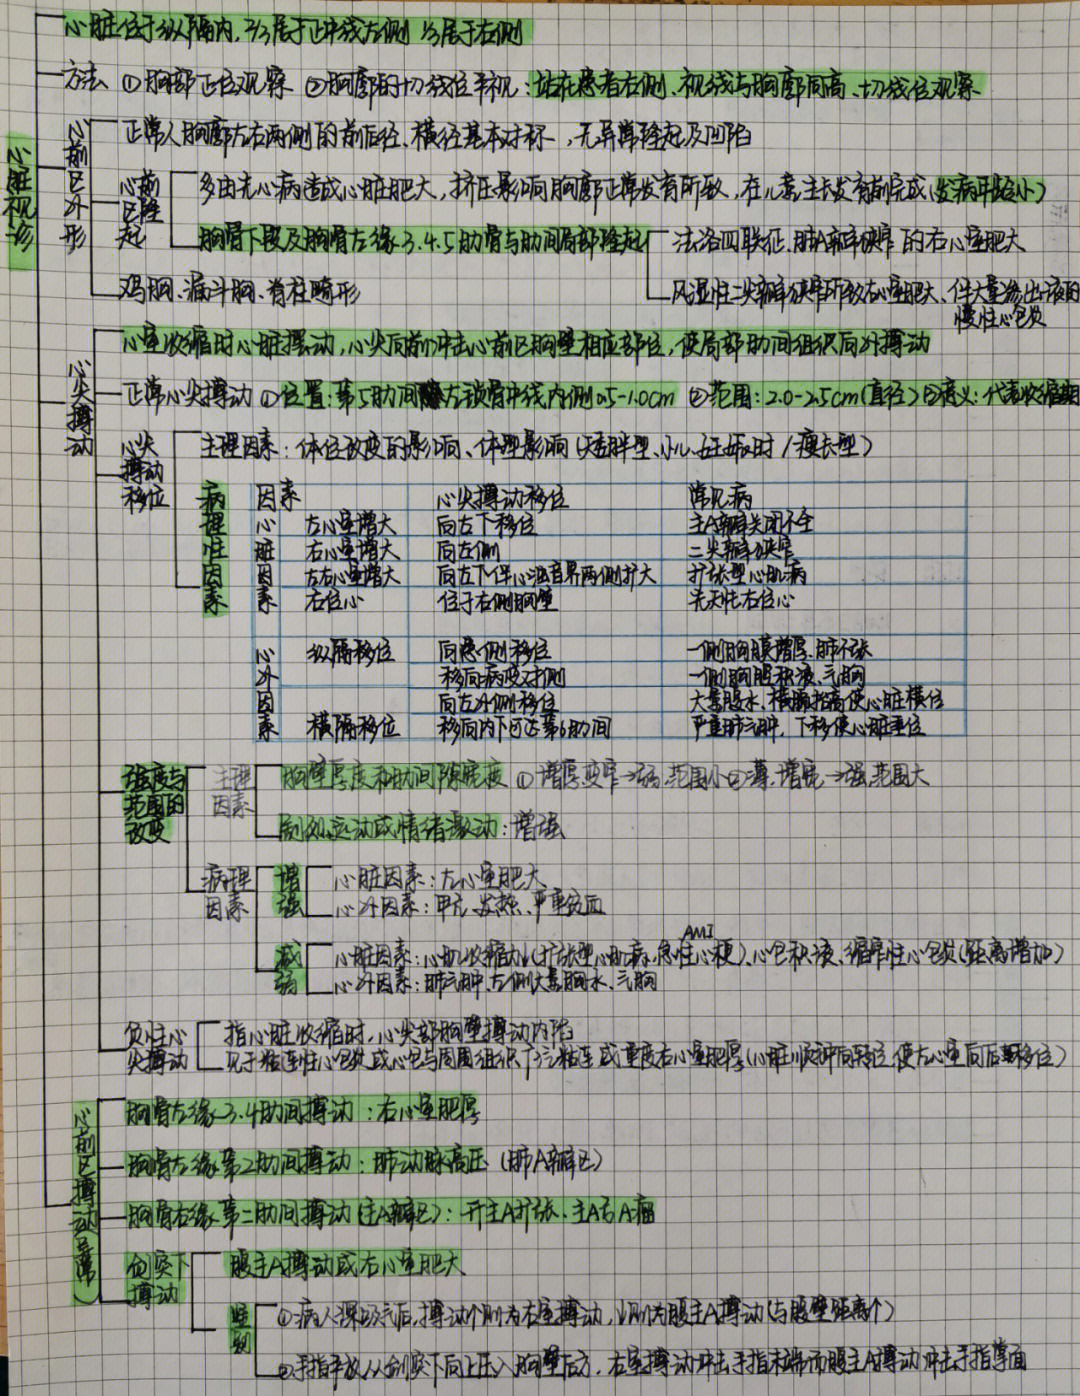 心脏视诊
心脏位于纵隔内,2/3居于正中线左侧 1/3居于右侧
方法 ①胸部正位观察 ②胸廓的切线位平视:站在患者右侧、视线与胸廓同高、切线位观察
心前区外形
正常人胸廓左右两侧的前后径、横径基本对称,无异常隆起及凹陷
心前区隆起
多由先心病造成心脏肥大,挤压影响胸廓正常发育所致,在儿童生长发育前完成(发病年龄小)
胸骨下段及胸骨左缘3.4.5肋骨与肋间局部隆起
法洛四联征、肺A瓣狭窄的右心室肥大
风湿性二尖瓣狭窄所致右心室肥大、伴大量渗出液的
慢性心包炎
鸡胸、漏斗胸、脊柱畸形
心尖搏动
心室收缩时心脏摆动,心尖向前冲击心前区胸壁相应部位,使局部肋间组织向外搏动
正常心尖搏动 ①位置:第5肋间 左锁骨中线内侧0.5-1.0cm ②范围:2.0-2.5cm(直径) ③意义:代表收缩期
心尖搏动移位
生理因素:体位改变的影响、体型影响(矮胖型、小儿、妊娠时/瘦长型)
病理性因素
因素 心尖搏动移位 常见病
心脏因素
左心室增大 向左下移位 主A瓣关闭不全
右心室增大 向左侧 二尖瓣狭窄
左右心室增大 向左下伴心浊音界两侧扩大 扩张型心肌病
右位心 位于右侧胸壁 先天性右位心
心外因素
纵隔移位 向患侧移位 一侧胸膜增厚、肺不张
移向病变对侧 一侧胸腔积液、气胸
向左外侧移位 大量腹水、横膈抬高使心脏横位
横膈移位 移向内下可达第6肋间 严重肺气肿,下移使心脏垂位
强度与范围的改变
生理因素
胸壁厚度和肋间隙宽度 ①增厚变窄→弱,范围小 ②薄、增宽→强,范围大
剧烈运动或情绪激动:增强
病理因素
增强
心脏因素:左心室肥大
心外因素:甲亢、发热、严重贫血
减弱
AMI
心脏因素:心肌收缩力↓(扩张型心肌病、急性心梗)、心包积液、缩窄性心包炎(距离增加)
心外因素:肺气肿、左侧大量胸水、气胸
负性心尖搏动
指心脏收缩时,心尖部胸壁搏动内陷
见于粘连性心包炎或心包与周围组织广泛粘连或重度右心室肥厚(心脏顺钟向转位,使左心室向后移位)
心前区搏动(异常)
胸骨左缘3.4肋间搏动:右心室肥厚
胸骨左缘第2肋间搏动:肺动脉高压(肺A瓣区)
胸骨右缘第二肋间搏动(主A瓣区):升主A扩张、主A弓A瘤
剑突下搏动
腹主A搏动或右心室肥大
鉴别
①病人深吸气后,搏动↑则为右室搏动,↓则为腹主A搏动(与腹壁距离↑)
②手指平放从剑突下向上压入胸壁后方,右室搏动冲击手指末端而腹主A搏动冲击手指掌面